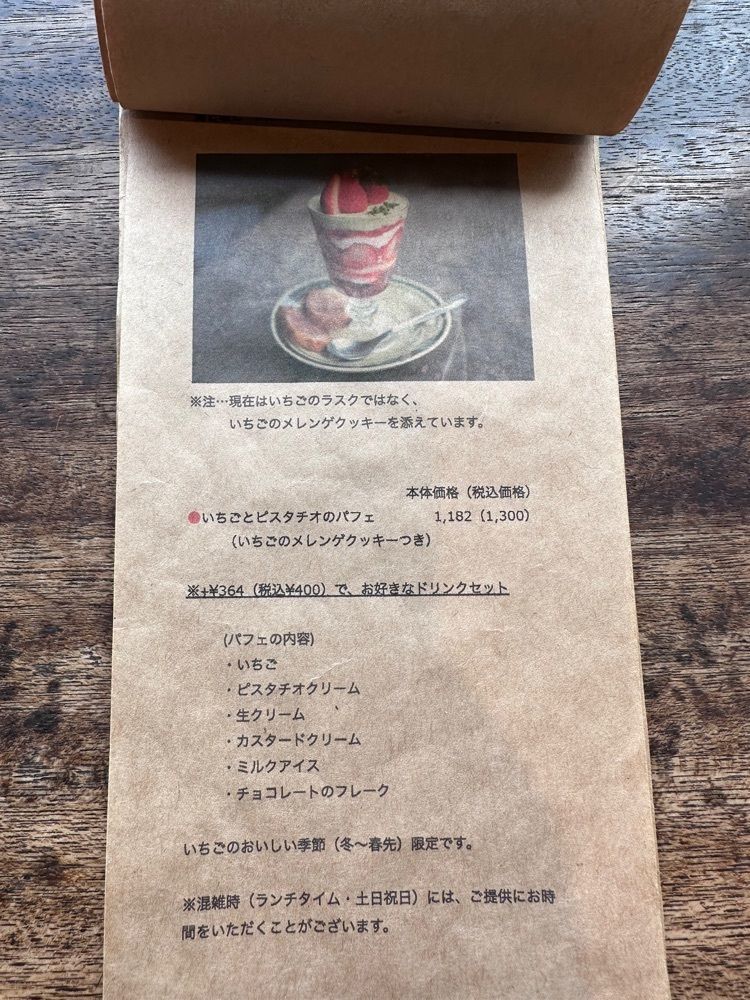 ※注…現在はいちごのラスクではなく、
いちごのメレンゲクッキーを添えています。
本体価格（税込価格）
●いちごとピスタチオのパフェ 1,182（1,300）
（いちごのメレンゲクッキーつき）
※+¥364（税込¥400）で、お好きなドリンクセット
(パフェの内容)
・いちご
・ピスタチオクリーム
・生クリーム
・カスタードクリーム
・ミルクアイス
・チョコレートのフレーク
いちごのおいしい季節（冬～春先）限定です。
※混雑時（ランチタイム・土日祝日）には、ご提供にお時
間をいただくことがございます。